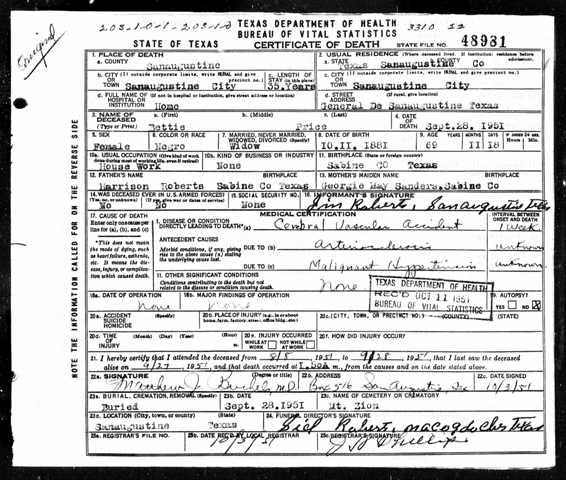 203-1-0-1-203-1-0
TEXAS DEPARTMENT OF HEALTH
3310 52
BUREAU OF VITAL STATISTICS
STATE OF TEXAS
CERTIFICATE OF DEATH
STATE FILE NO. 48931
1. PLACE OF DEATH
a. COUNTY
Sanaugustine
2. USUAL RESIDENCE (Where deceased lived. If institution: residence before admission).
a. STATE Texas
b. COUNTY Sanaugustine Co
b. CITY (If outside corporate limits, write RURAL and give precinct no.)
OR TOWN Sanaugustine City
c. LENGTH OF STAY (in this place)
35 Years
c. CITY (If outside corporate limits, write RURAL and give precinct no.)
OR TOWN Sanaugustine City
d. FULL NAME OF (If not in hospital or institution, give street address or location)
HOSPITAL OR INSTITUTION Home
d. STREET ADDRESS (If rural, give location)
General De Sanaugustine Texas
3. NAME OF DECEASED (Type or Print)
a. (First) Bettie
b. (Middle)
c. (Last) Price
4. DATE OF DEATH
Sept.28,1951
5. SEX
Female
6. COLOR OR RACE
Negro
7. MARRIED, NEVER MARRIED, WIDOWED, DIVORCED (Specify)
Widow
8. DATE OF BIRTH
10.11.1881
9. AGE YEARS 69 MONTHS 11 DAYS 18
10a. USUAL OCCUPATION (Give kind of work done during most of working life, even if retired)
House Work
10b. KIND OF BUSINESS OR INDUSTRY
None
11. BIRTHPLACE (State or foreign country)
Sabine CO Texas
12. FATHER'S NAME
Harrison Roberts Sabine Co Texas
13. MOTHER'S MAIDEN NAME
Georgie May Sanders, Sabine Co
14. WAS DECEASED EVER IN U.S. ARMED FORCES?
No
15. SOCIAL SECURITY NO.
None
16. INFORMANT'S SIGNATURE
Jim Roberts, San augustine Tex
17. CAUSE OF DEATH
Enter only one cause per line for (a), (b), and (c)
MEDICAL CERTIFICATION
INTERVAL BETWEEN ONSET AND DEATH
I. DISEASE OR CONDITION DIRECTLY LEADING TO DEATH* (a) Cerebral Vascular Accident
1 week
*This does not mean the mode of dying, such as heart failure, asthenia, etc. It means the disease, injury, or complication which caused death.
ANTECEDENT CAUSES
Morbid conditions, if any, giving rise to the above cause (a) stating the underlying cause last.
DUE TO (b) Arteriosclerosis
unknown
DUE TO (c) Malignant Hypertension
unknown
II. OTHER SIGNIFICANT CONDITIONS
Conditions contributing to the death but not related to the disease or condition causing death.
None
TEXAS DEPARTMENT OF HEALTH
REC'D OCT 11 1951
BUREAU OF VITAL STATISTICS
18a. DATE OF OPERATION
none
18b. MAJOR FINDINGS OF OPERATION
none
19. AUTOPSY?
YES NO X
20a. ACCIDENT SUICIDE HOMICIDE
20b. PLACE OF INJURY (e.g. in or about home, farm, factory, street, office bldg., etc.)
20c. (CITY, TOWN, OR PRECINCT NO.) (COUNTY)
20d. TIME OF INJURY
20e. INJURY OCCURRED
WHILE AT WORK NOT WHILE AT WORK
20f. HOW DID INJURY OCCUR?
21. I hereby certify that I attended the deceased from 8/8 1951, to 9/28, 1951, that I last saw the deceased
alive on 9/27 1951, and that death occurred at 1.50A m., from the causes and on the date stated above.
22a. SIGNATURE
22b. ADDRESS
Box 516 San Augustine, Tex
22c. DATE SIGNED
10/3/51
23a. BURIAL, CREMATION, REMOVAL (Specify)
Buried
23b. DATE
Sept.28,1951
23c. NAME OF CEMETERY OR CREMATORY
Mt. Zion
23d. LOCATION (City, town, or county) (State)
Sanaugustine Texas
24. FUNERAL DIRECTOR'S SIGNATURE
Roberts, nacogdoches Texas
25a. REGISTRAR'S FILE NO.
25b. DATE REC'D BY LOCAL REGISTRAR
10/3/51
25c. REGISTRAR'S SIGNATURE
NOTE THE INFORMATION CALLED FOR ON THE REVERSE SIDE